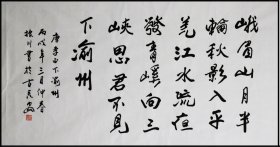 峨眉山月半
輪秋影入平
羌江水流夜
發青嵠向三
峽思君不見
下渝州
唐李白下渝州
丙戌年三月仲春
川書於